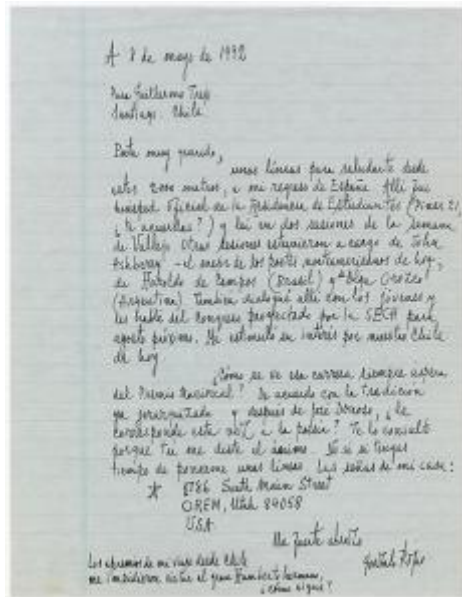 A 8 de mayo de 1992
Para Guillermo Trejo
Santiago. Chile
Poeta muy querido,
unas líneas para saludarte desde
estos 2000 metros, a mi regreso de España. Allí fui
huésped oficial de la Residencia de Estudiantes (Pinar 21,
¿te acuerdas?) y leí en dos sesiones de la semana
de Vallejo. Otras sesiones estuvieron a cargo de John
Ashbery - el mejor de los poetas norteamericanos de hoy,
de Haroldo de Campos (Brasil) y de Olga Orozco
(Argentina). También dialogué allí con los jóvenes y
les hablé del congreso proyectado por la SECH para
agosto próximo. Me estimuló su interés por nuestro Chile
de hoy.
¿Cómo se ve esa carrera siempre áspera
del Premio Nacional? De acuerdo con la tradición
ya y después de José Donoso, ¿le
corresponde esta vez a la poesía? Te lo consulto
porque tú me diste el ánimo. No sé si tengas
tiempo de ponerme unas líneas. Las señas de mi casa:
* 8786 South Main Street
OREM, Utah 84058
USA
Un fuerte abrazo
Gonzalo Rojas
Los apremios de mi viaje desde Chile
me impidieron visitar al gran Humberto hermano,
¿cómo sigue?